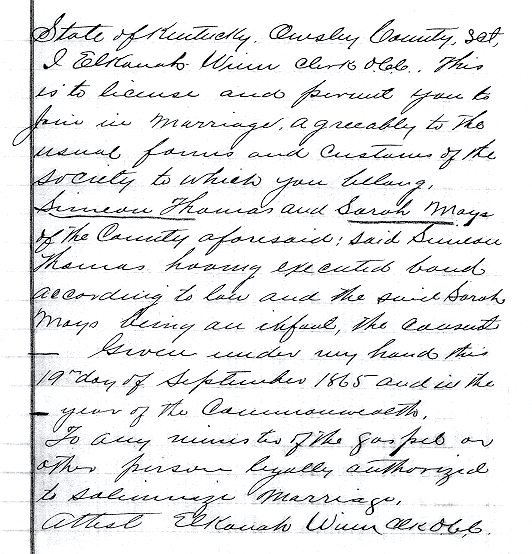 State of Kentucky. Owsley County, Sct,
I Elkanah Winn Clerk O.C.C. This
is to license and permit you to
Join in Marriage. agreeably to the
usual forms and Customs of the
society to which you belong.
Simeon Thomas and Sarah Mays
of the County aforesaid; said Simeon
Thomas having executed bond
according to law and the said Sarah
Mays being an infant, the consent
— Given under my hand this
19th day of September 1865 and in the
— year of the Commonwealth.
To any minister of the gospel or
other person legally authorized
to solimnize Marriage.
Attest Elkanah Winn Clk O.C.C.